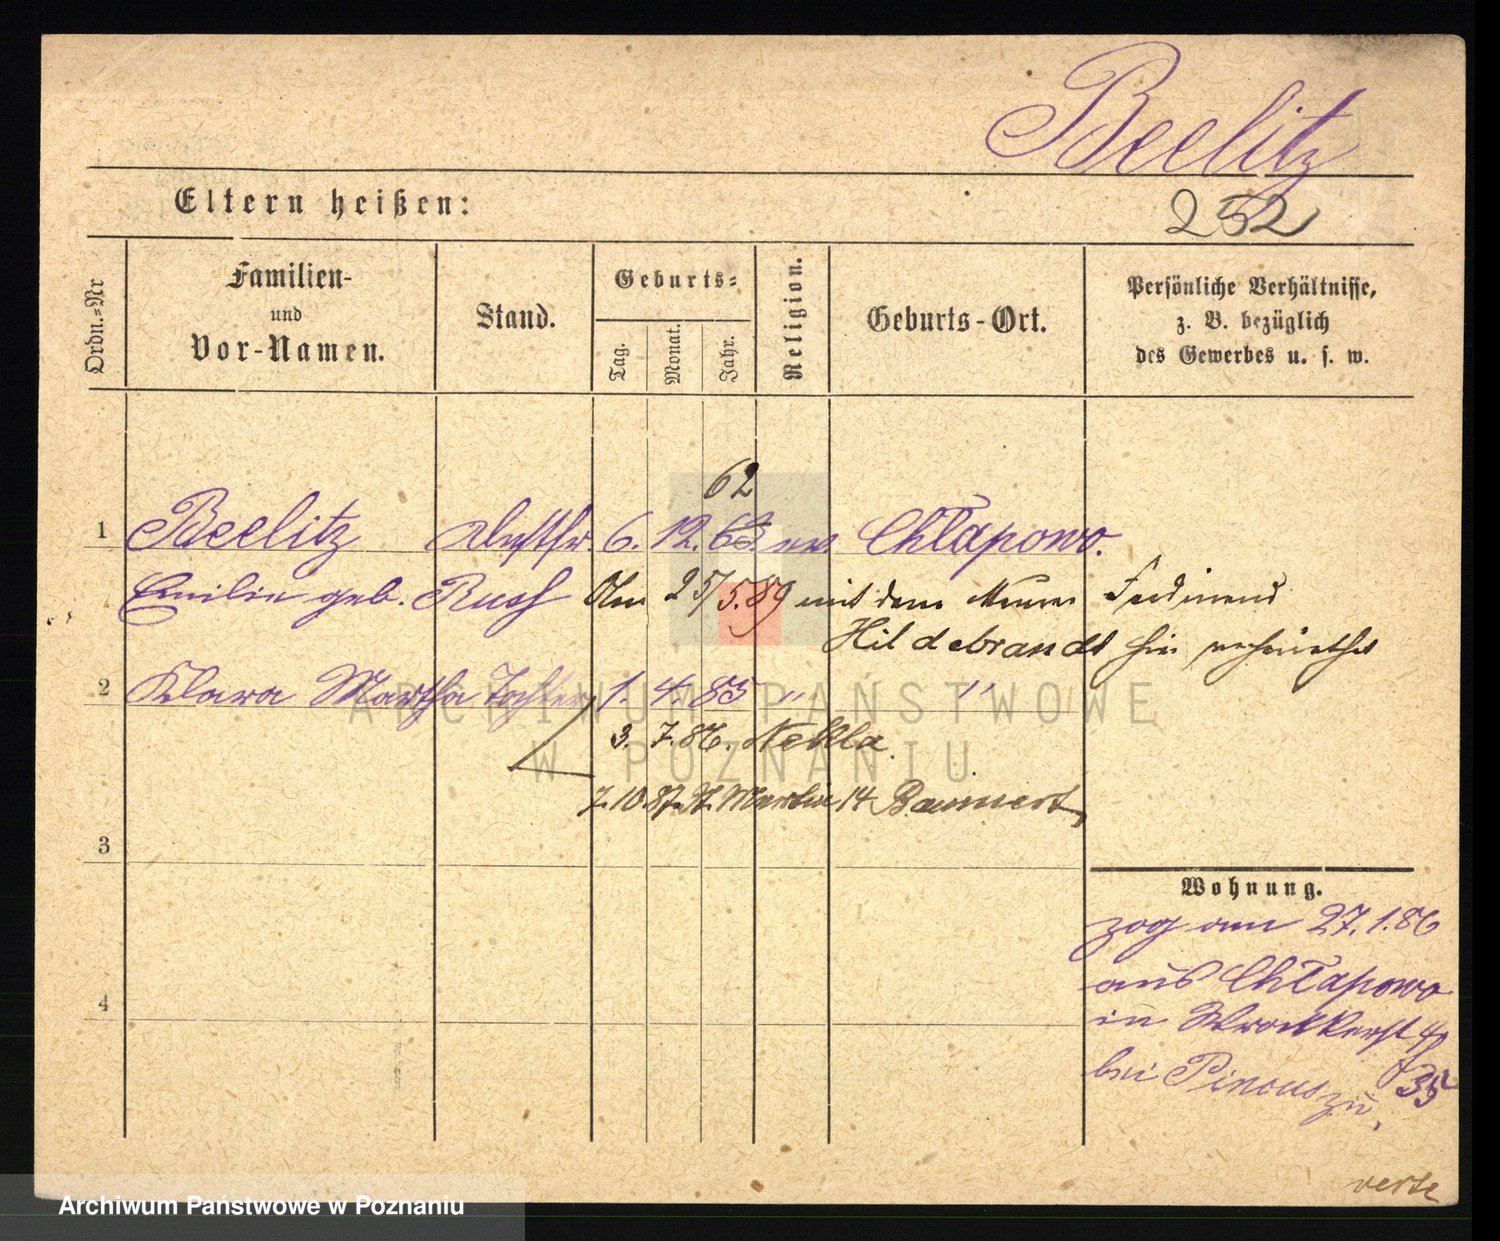 Beelitz
252
Eltern heißen:
Ordn.=Nr
Familien-
und
Vor-Namen.
Stand.
Geburts=
Tag.
Monat.
Jahr.
Religion.
Geburts-Ort.
Persönliche Verhältnisse,
z. B. bezüglich
des Gewerbes u. s. w.
62
1 Beelitz 6. 12. 63. ev. Chłapowo.
Emilie geb. Rusch Am 25/5.89 mit dem Maurer Ferdinand
Hildebrandt hier verheirathet
2 Klara Martha Tochter 1. 4. 85 " "
3. 7. 86. Nekla
7. 10. 87. St. Martin 14 Bannert
3
Wohnung.
zog am 27.1.86
aus Chłapowo
4
in Wronkerst 4
bei Pincus zu,
35
verte
ARCHIWUM PAŃSTWOWE
W POZNANIU
Archiwum Państwowe w Poznaniu